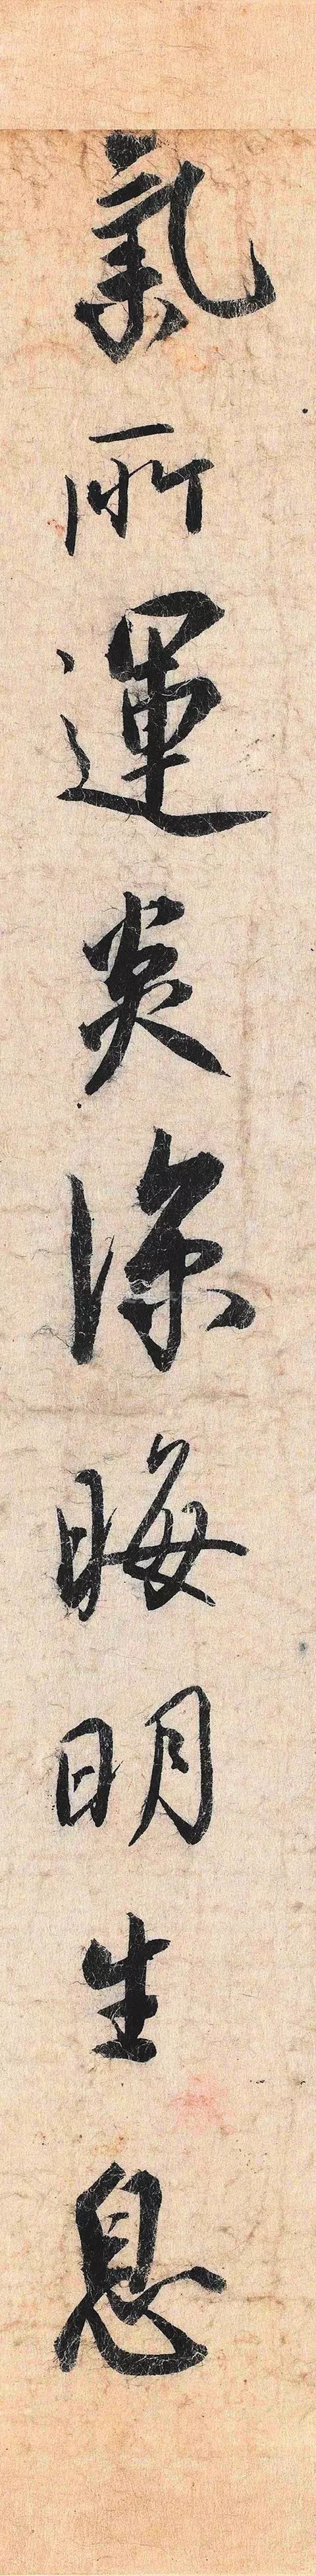 氣所運炎涼晦明生息